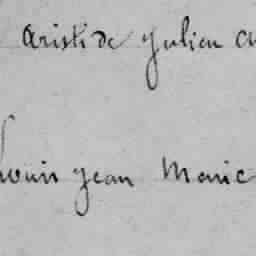 Aristide Julien
Louis Jean Marie